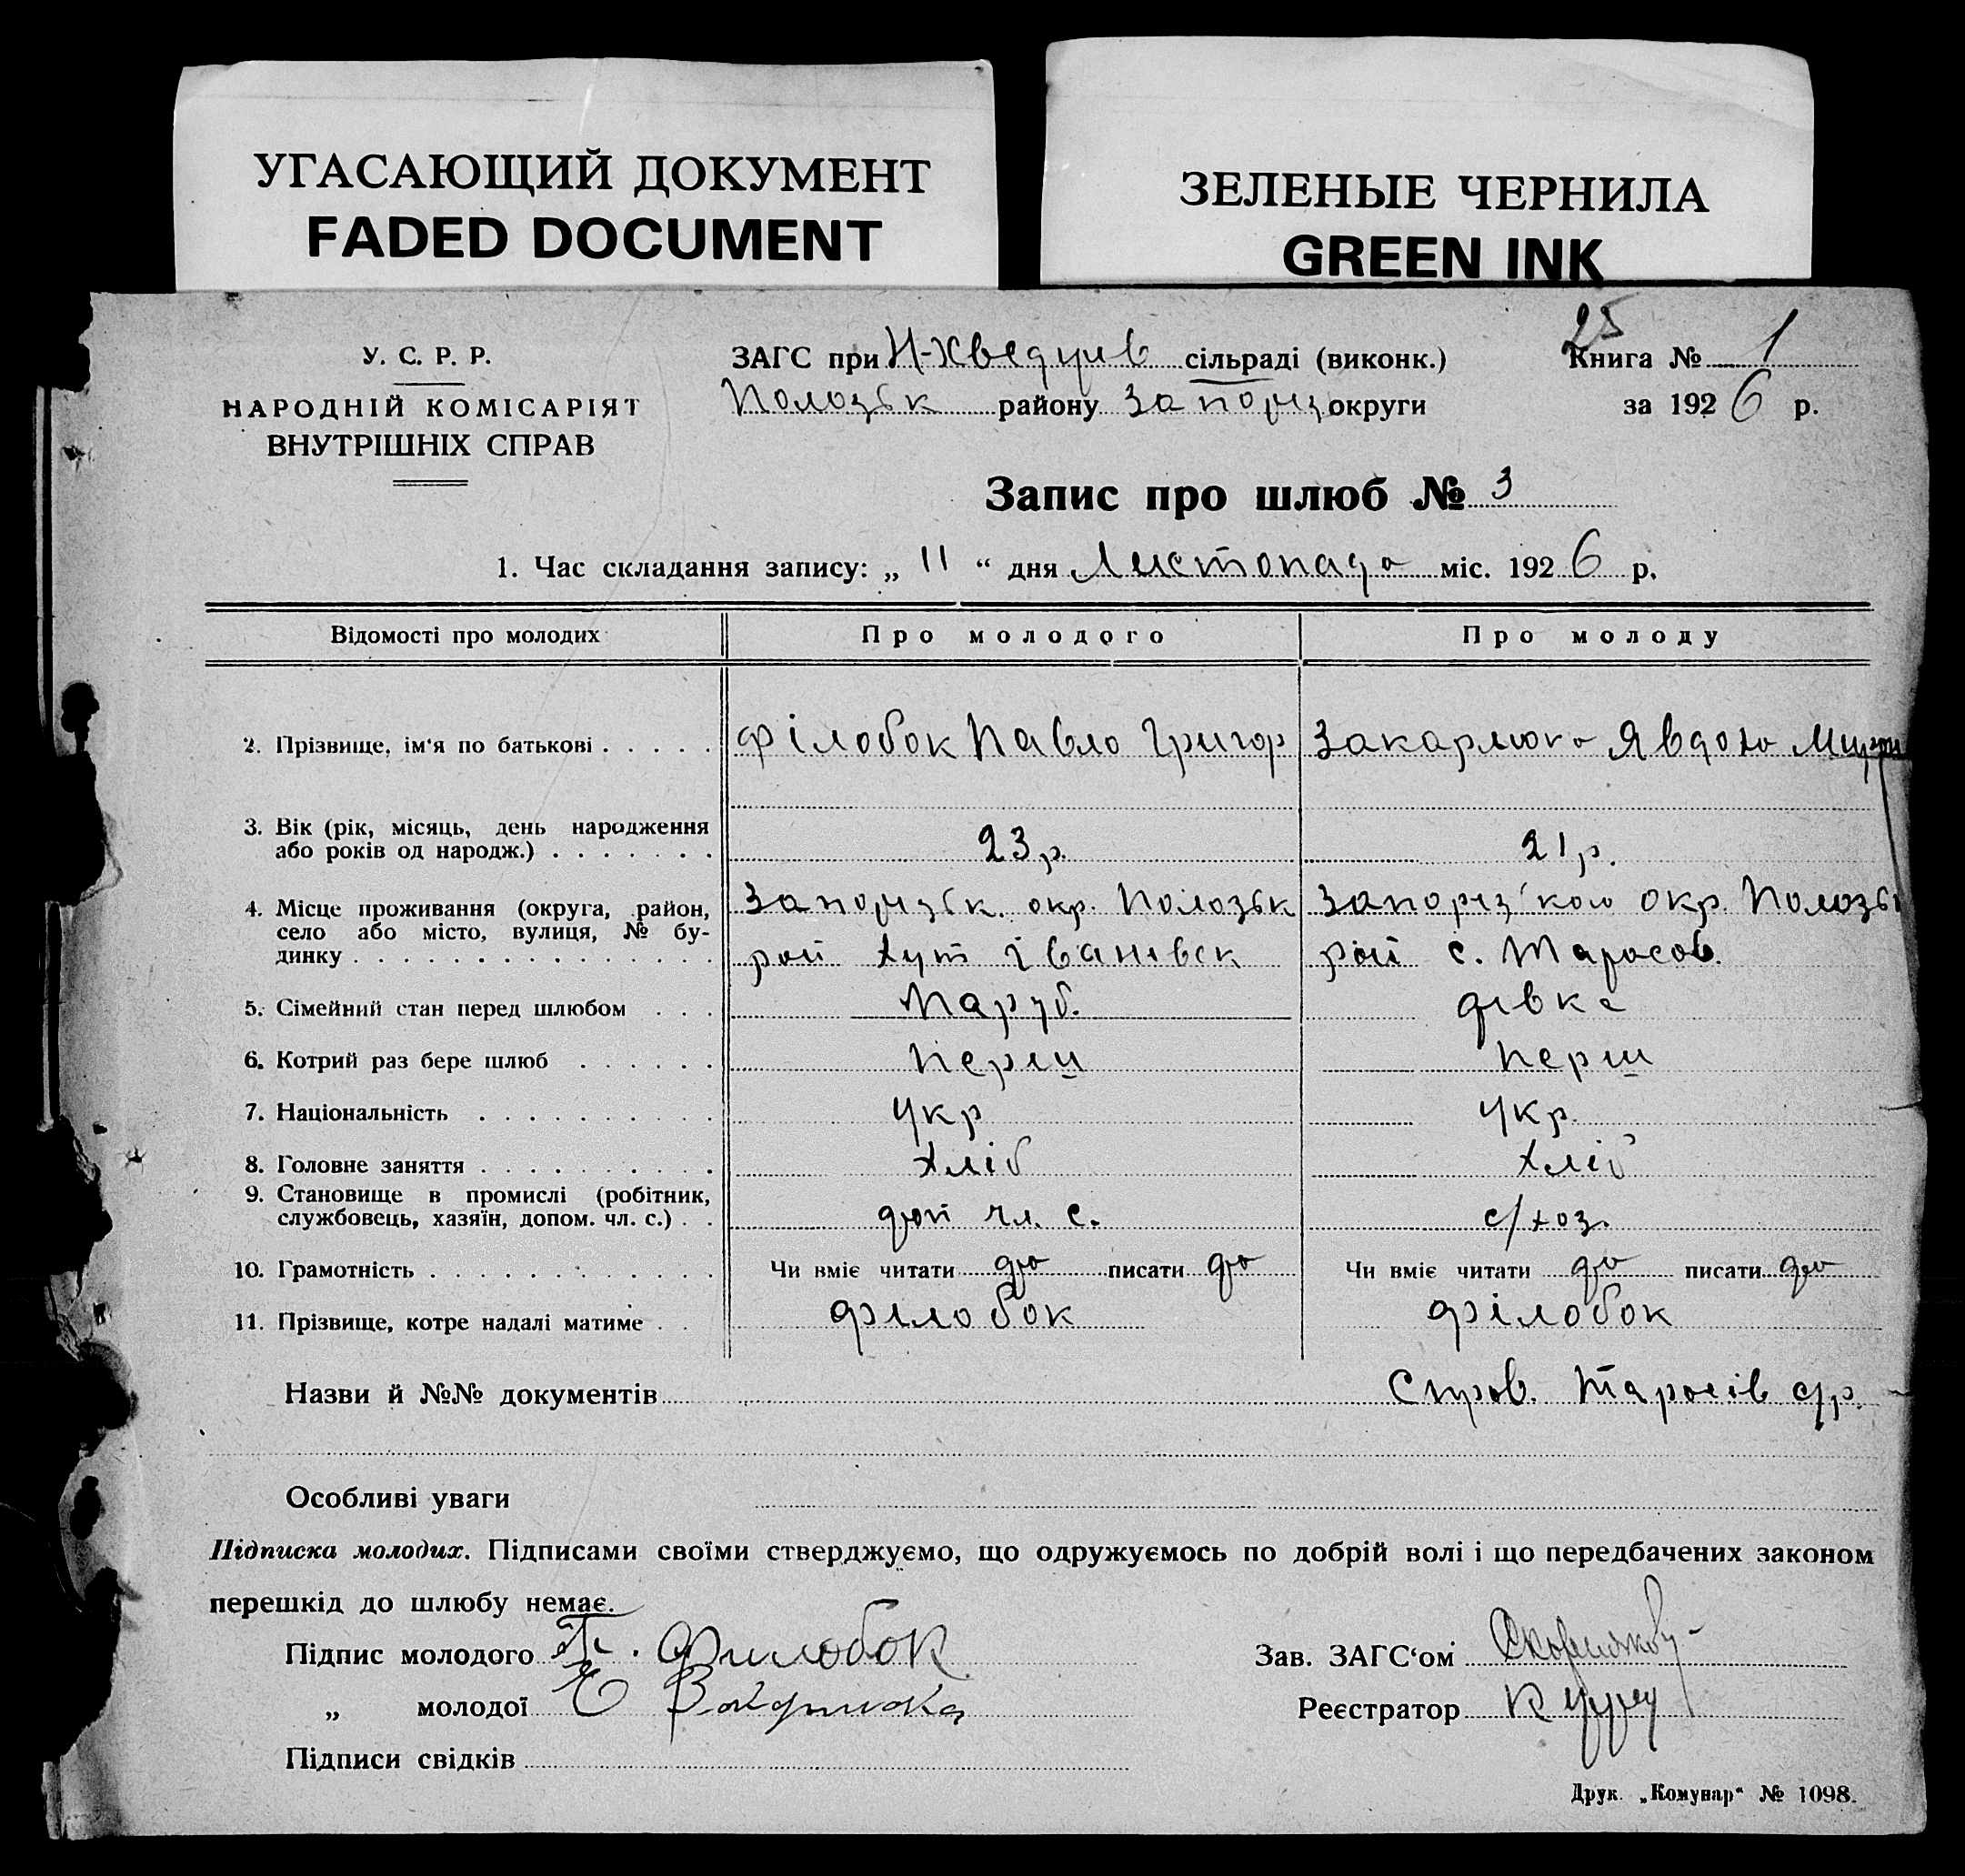 УГАСАЮЩИЙ ДОКУМЕНТ
FADED DOCUMENT
ЗЕЛЕНЫЕ ЧЕРНИЛА
GREEN INK
25
У. С. Р. Р.
НАРОДНІЙ КОМІСАРІЯТ
ВНУТРІШНІХ СПРАВ
ЗАГС при Н-Хведурів сільраді (виконк.)
Полозьк району Запоріз округи
Книга № 1
за 1926 р.
Запис про шлюб № 3
1. Час складання запису: „ 11 “ дня Листопада міс. 1926 р.
Відомості про молодих Про молодого Про молоду
2. Прізвище, ім'я по батькові . . . . . Філобок Павло Григор Закарлюка Явдоха
3. Вік (рік, місяць, день народження
або років од народж.) . . . . . . . 23 р. 21 р.
4. Місце проживання (округа, район, Запорізьк. окр. Полозьк Запоріз'кою окр. Полозьк
село або місто, вулиця, № бу-
динку . . . . . . . . . . . . . . . рай Хут Іванівск рай с. Тарасов.
5. Сімейний стан перед шлюбом . . . Паруб. дівка
6. Котрий раз бере шлюб . . . . . . Перш Перш
7. Національність . . . . . . . . . . Укр Укр.
8. Головне заняття . . . . . . . . . . Хліб Хліб
9. Становище в промислі (робітник,
службовець, хазяїн, допом. чл. с.) . . доп чл. с. с/хоз.
10. Грамотність . . . . . . . . . . . . Чи вміє читати да писати да Чи вміє читати да писати да
11. Прізвище, котре надалі матиме . . Філобок Філобок
Назви й №№ документів Спров. Тарасів с/р.
Особливі уваги
Підписка молодих. Підписами своїми стверджуємо, що одружуємось по добрій волі і що передбачених законом
перешкід до шлюбу немає.
Підпис молодого П. Филобок
„ молодої Е
Підписи свідків
Зав. ЗАГС'ом
Реєстратор
Друк. „Комунар“ № 1098.